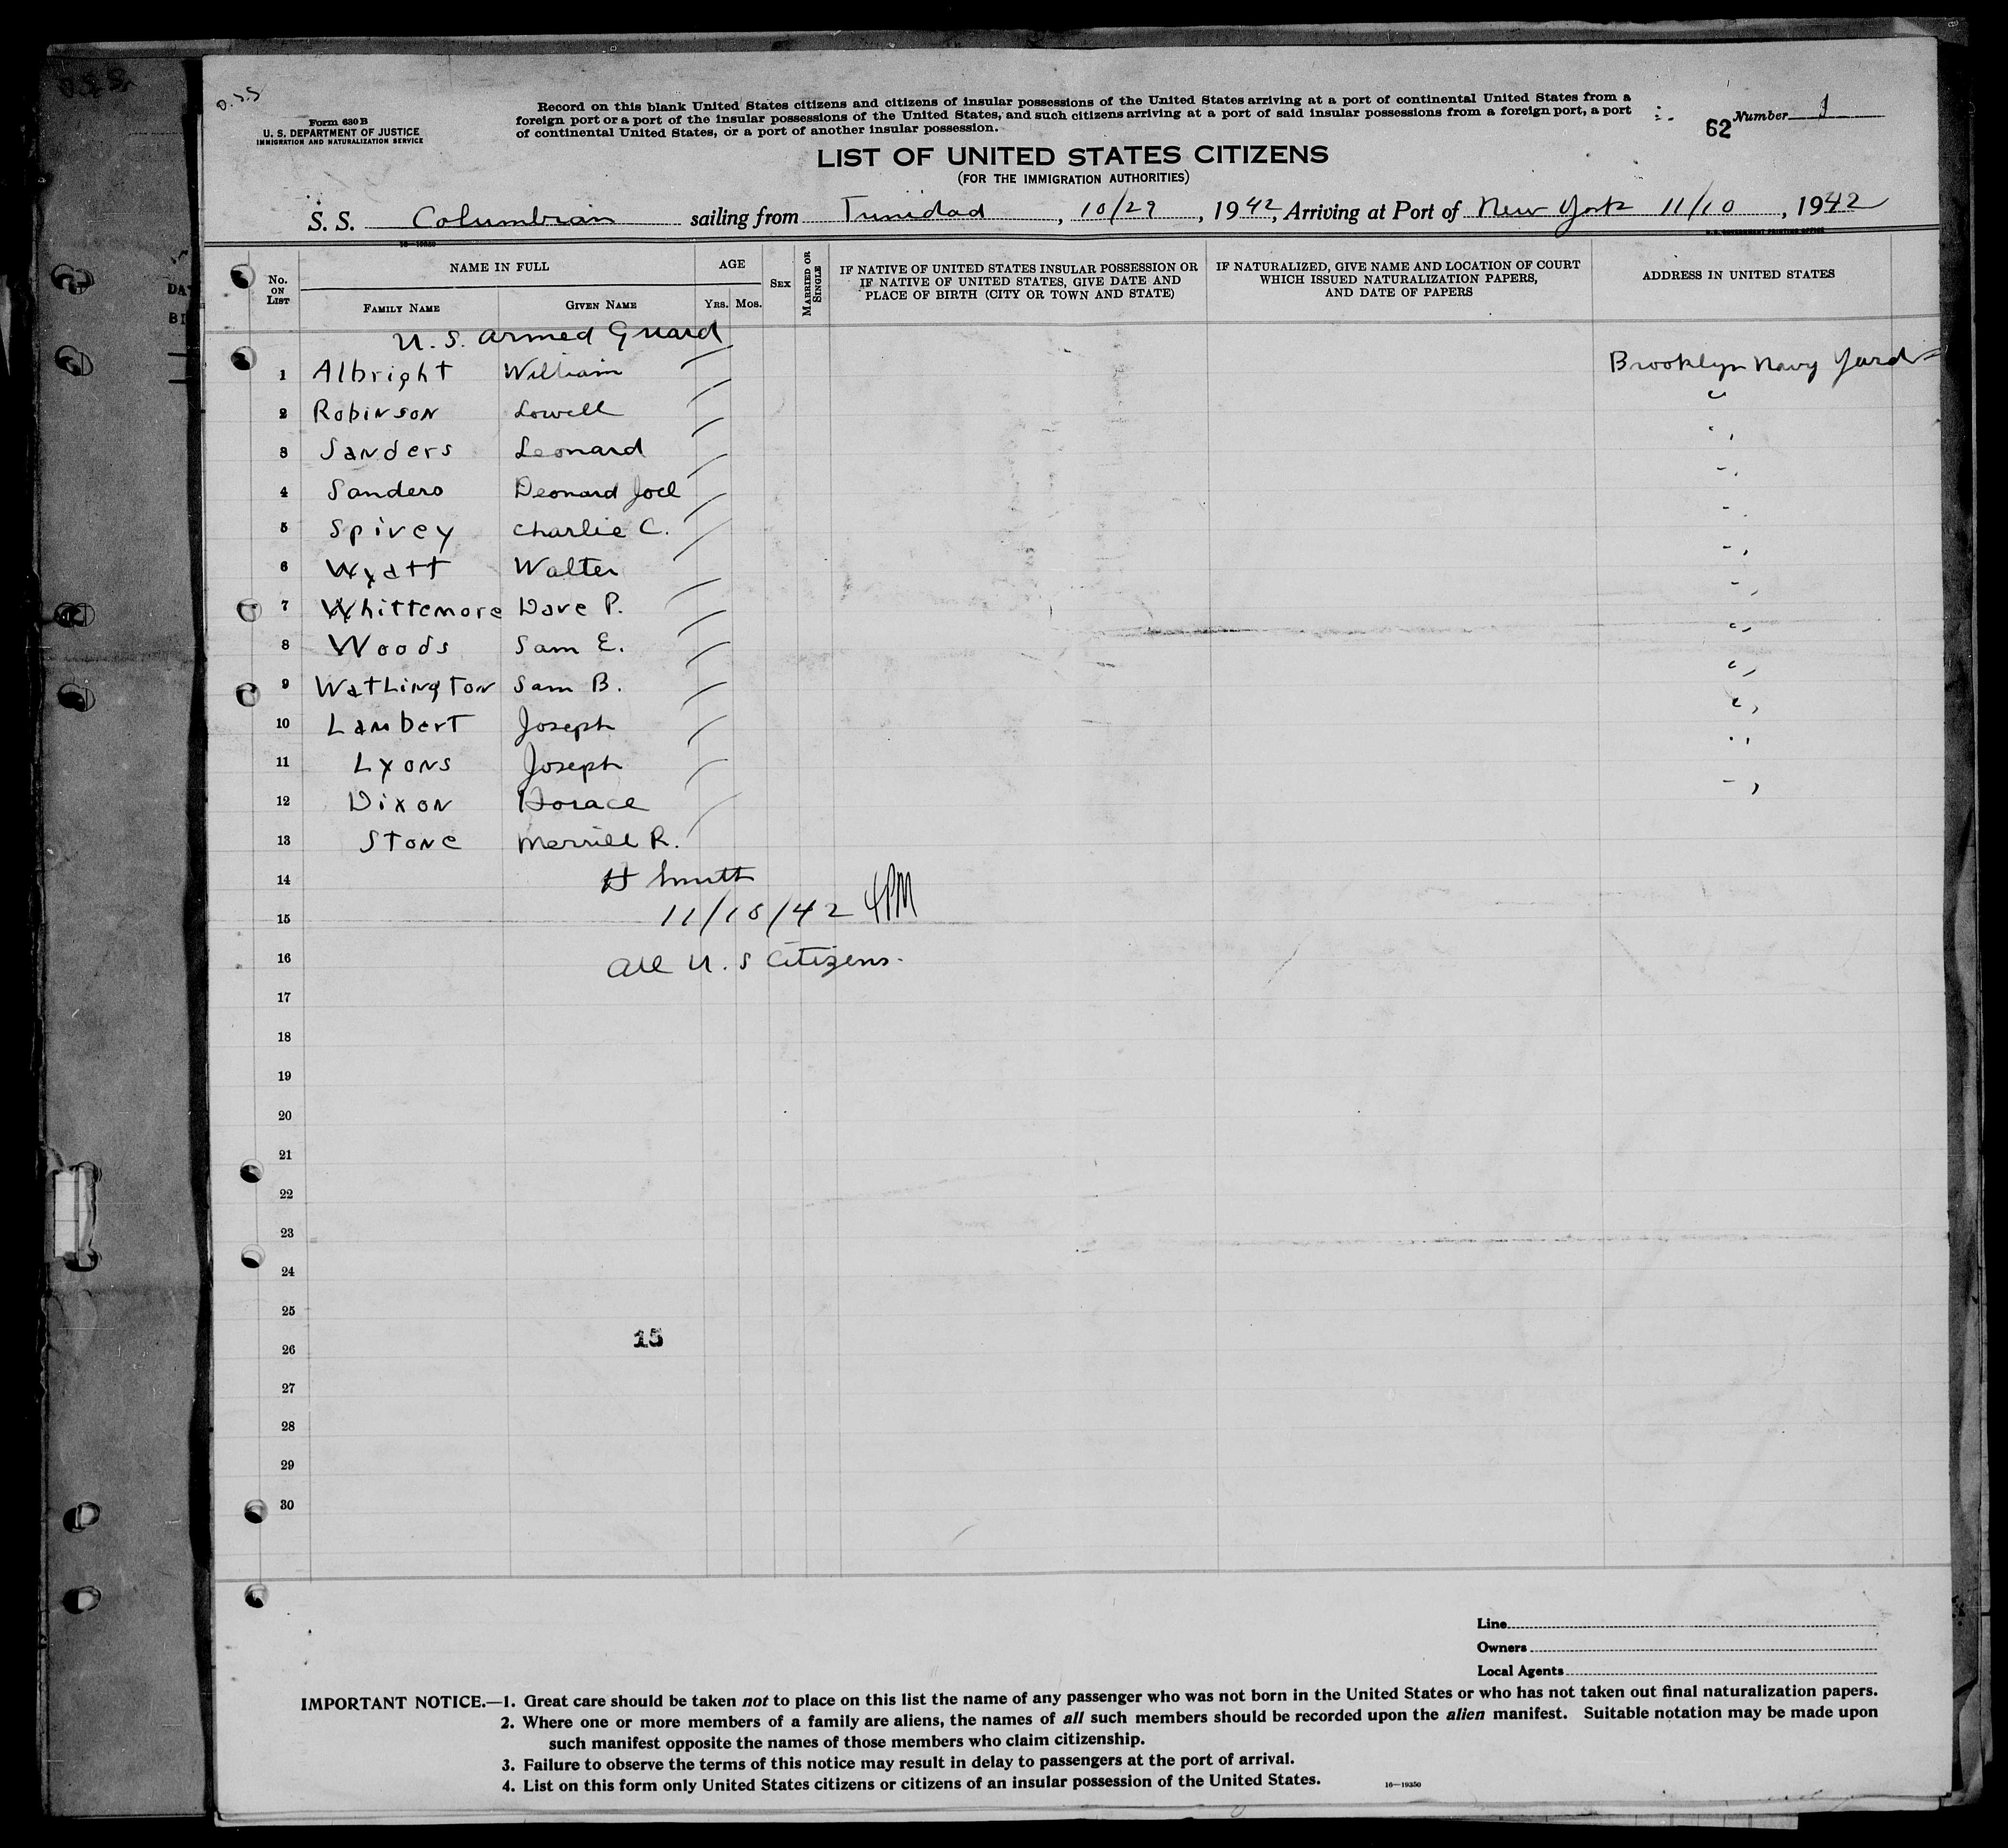 O.S.S.
O.S.S
Form 630 B
U. S. DEPARTMENT OF JUSTICE
IMMIGRATION AND NATURALIZATION SERVICE
Record on this blank United States citizens and citizens of insular possessions of the United States arriving at a port of continental United States from a
foreign port or a port of the insular possessions of the United States, and such citizens arriving at a port of said insular possessions from a foreign port, a port
of continental United States, or a port of another insular possession.
62 Number 1
LIST OF UNITED STATES CITIZENS
(FOR THE IMMIGRATION AUTHORITIES)
S. S. Columbian sailing from Trinidad, 10/29, 1942, Arriving at Port of New York 11/10, 1942
16—19350
U. S. GOVERNMENT PRINTING OFFICE
No. ON LIST
NAME IN FULL
FAMILY NAME
GIVEN NAME
AGE
YRS. MOS.
SEX
MARRIED OR SINGLE
IF NATIVE OF UNITED STATES INSULAR POSSESSION OR
IF NATIVE OF UNITED STATES, GIVE DATE AND
PLACE OF BIRTH (CITY OR TOWN AND STATE)
IF NATURALIZED, GIVE NAME AND LOCATION OF COURT
WHICH ISSUED NATURALIZATION PAPERS,
AND DATE OF PAPERS
ADDRESS IN UNITED STATES
U. S. Armed Guard
1 Albright William Brooklyn Navy Yard
2 Robinson Lowell "
3 Sanders Leonard "
4 Sanders Deonard Joel "
5 Spivey Charlie C. "
6 Wyatt Walter "
7 Whittemore Dave P. "
8 Woods Sam E. "
9 Wathington Sam B. "
10 Lambert Joseph "
11 Lyons Joseph "
12 Dixon Horace "
13 Stone Merrill R.
14 H Smith
15 11/18/42 4PM
16 All U. S Citizens.
17
18
19
20
21
22
23
24
25
26 15
27
28
29
30
Line
Owners
Local Agents
IMPORTANT NOTICE.—1. Great care should be taken not to place on this list the name of any passenger who was not born in the United States or who has not taken out final naturalization papers.
2. Where one or more members of a family are aliens, the names of all such members should be recorded upon the alien manifest. Suitable notation may be made upon
such manifest opposite the names of those members who claim citizenship.
3. Failure to observe the terms of this notice may result in delay to passengers at the port of arrival.
4. List on this form only United States citizens or citizens of an insular possession of the United States.
16—19350